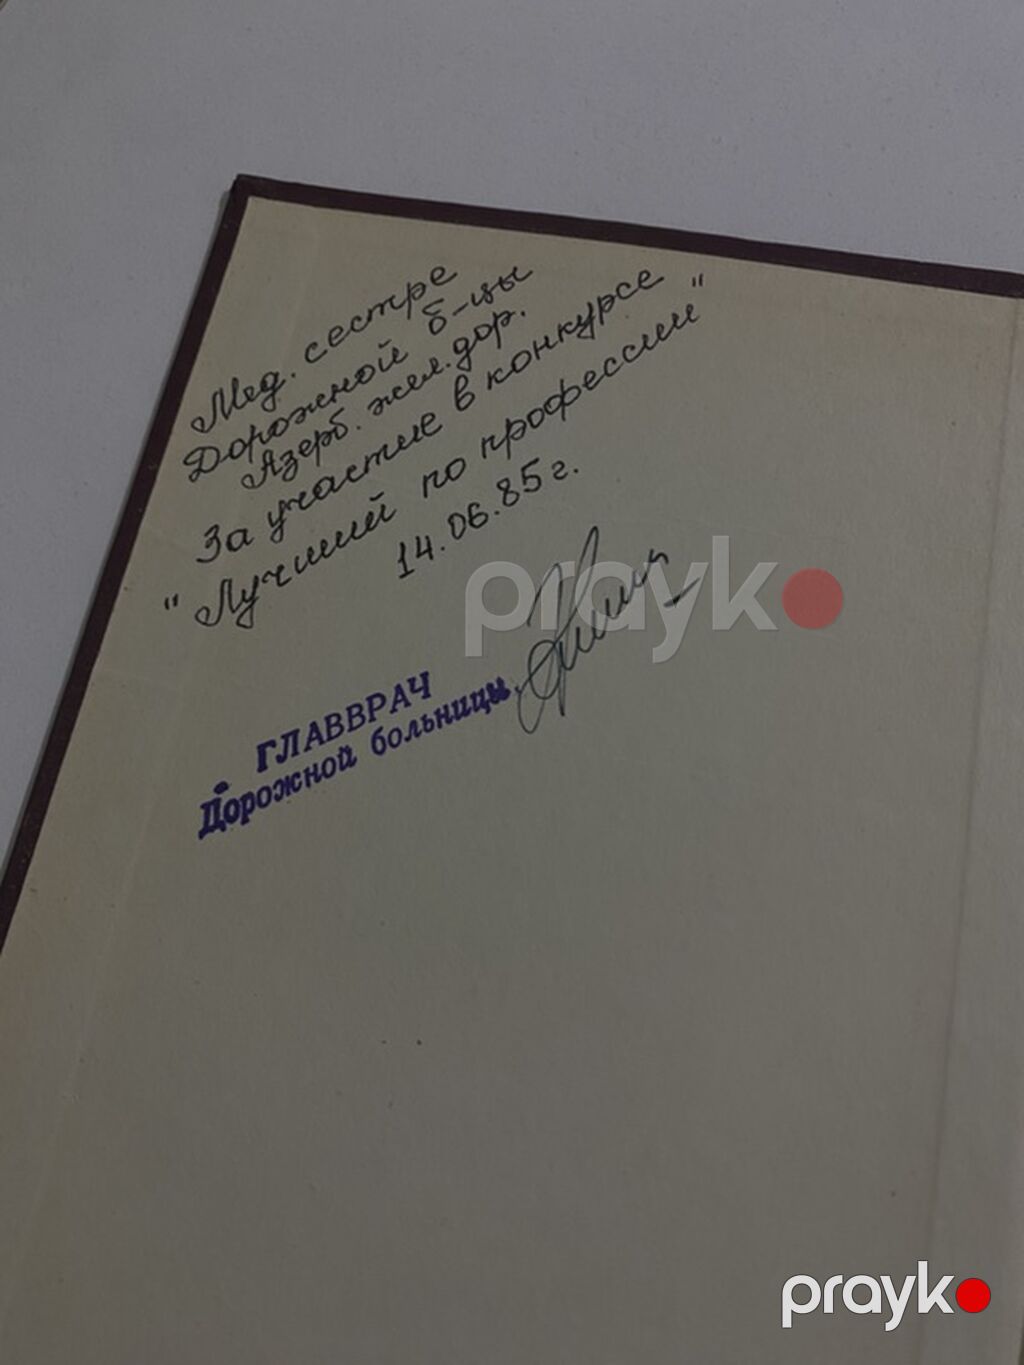 Мед. сестре
Дорожной б-цы
Азерб. жел. дор.
За участие в конкурсе
"Лучший по профессии"
14.06.85 г.
prayko
ГЛАВВРАЧ
Дорожной больницы
prayko